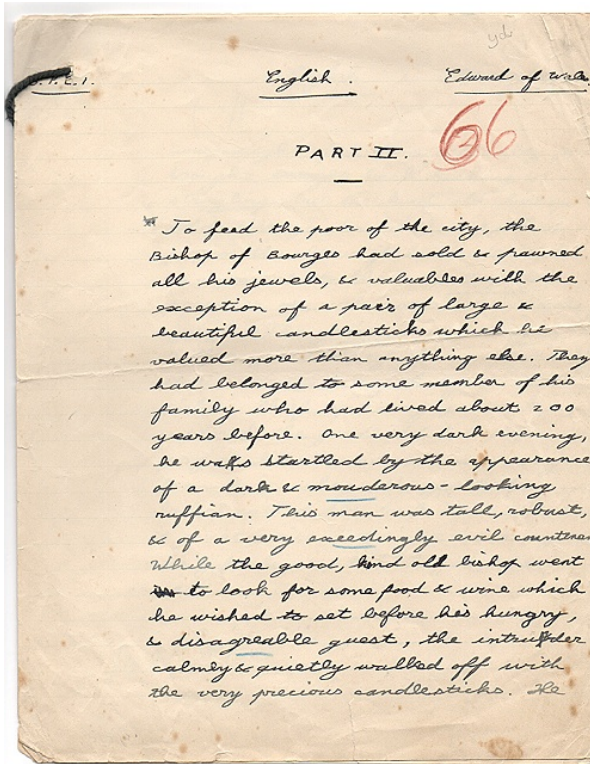 yd
J.T.E.T. English. Edward of Wales
66
PART II.
" To feed the poor of the city, the
Bishop of Bourges had sold & pawned
all his jewels, & valuables with the
exception of a pair of large &
beautiful candlesticks which he
valued more than anything else. They
had belonged to some member of his
family who had lived about 200
years before. One very dark evening,
he was startled by the appearance
of a dark & mouderous-looking
ruffian. This man was tall, robust,
& of a very exceedingly evil countenan
While the good, kind old bishop went
to look for some food & wine which
he wished to set before his hungry,
& disagreable guest, the intruder
calmly & quietly walked off with
the very precious candlesticks. He